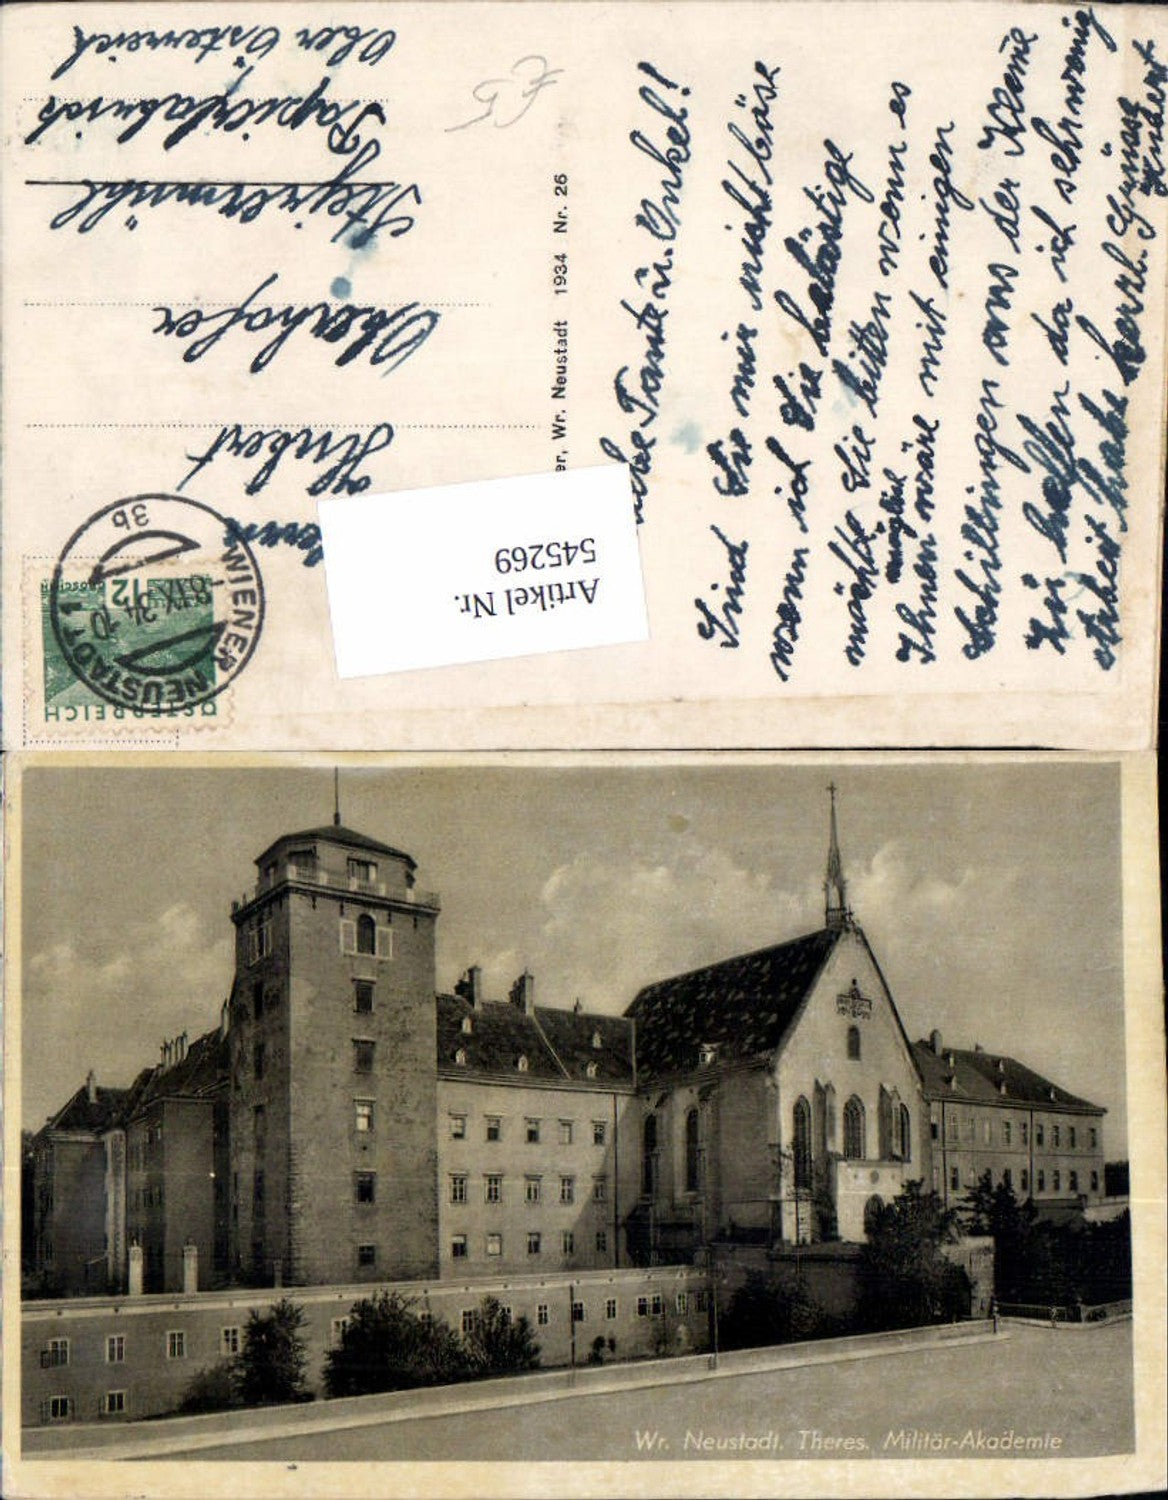 Liebe Tante u. Onkel!
Sind Sie mir nicht böse
wenn ich Sie belästige
möchte Sie bitten wenn es
Ihnen möglich wäre mit einigen
Schillingen aus der Kleme
zu helfen da ich sehr wenig
Arbeit habe herzl. Grüsse
Hubert
er, Wr. Neustadt 1934 Nr. 26
Hubert
Oberhofer
Steyrermühl
Papierfabrik
Ober Österreich
ÖSTERREICH
12
GROSCHEN
WIENER NEUSTADT 1
3b
Artikel Nr.
545269
Wr. Neustadt. Theres. Militär-Akademie